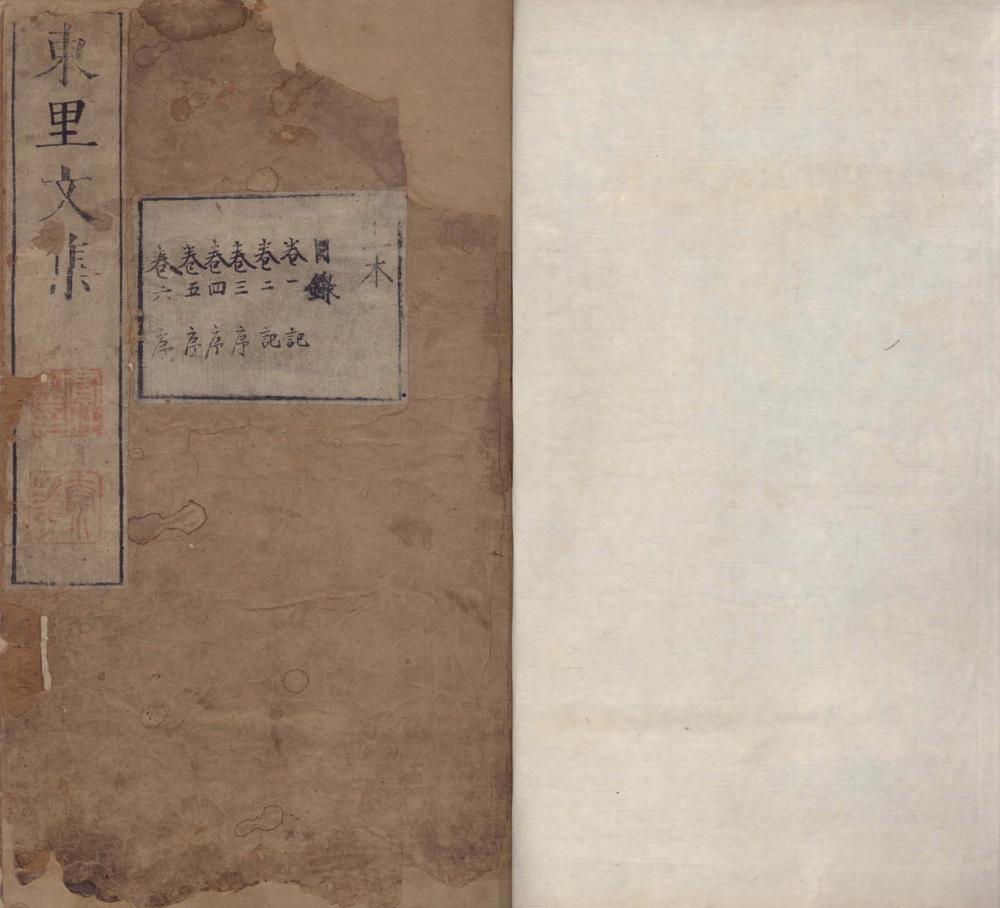 東里文集
本
目錄
卷一 記
卷二 記
卷三 序
卷四 序
卷五 序
卷六 序